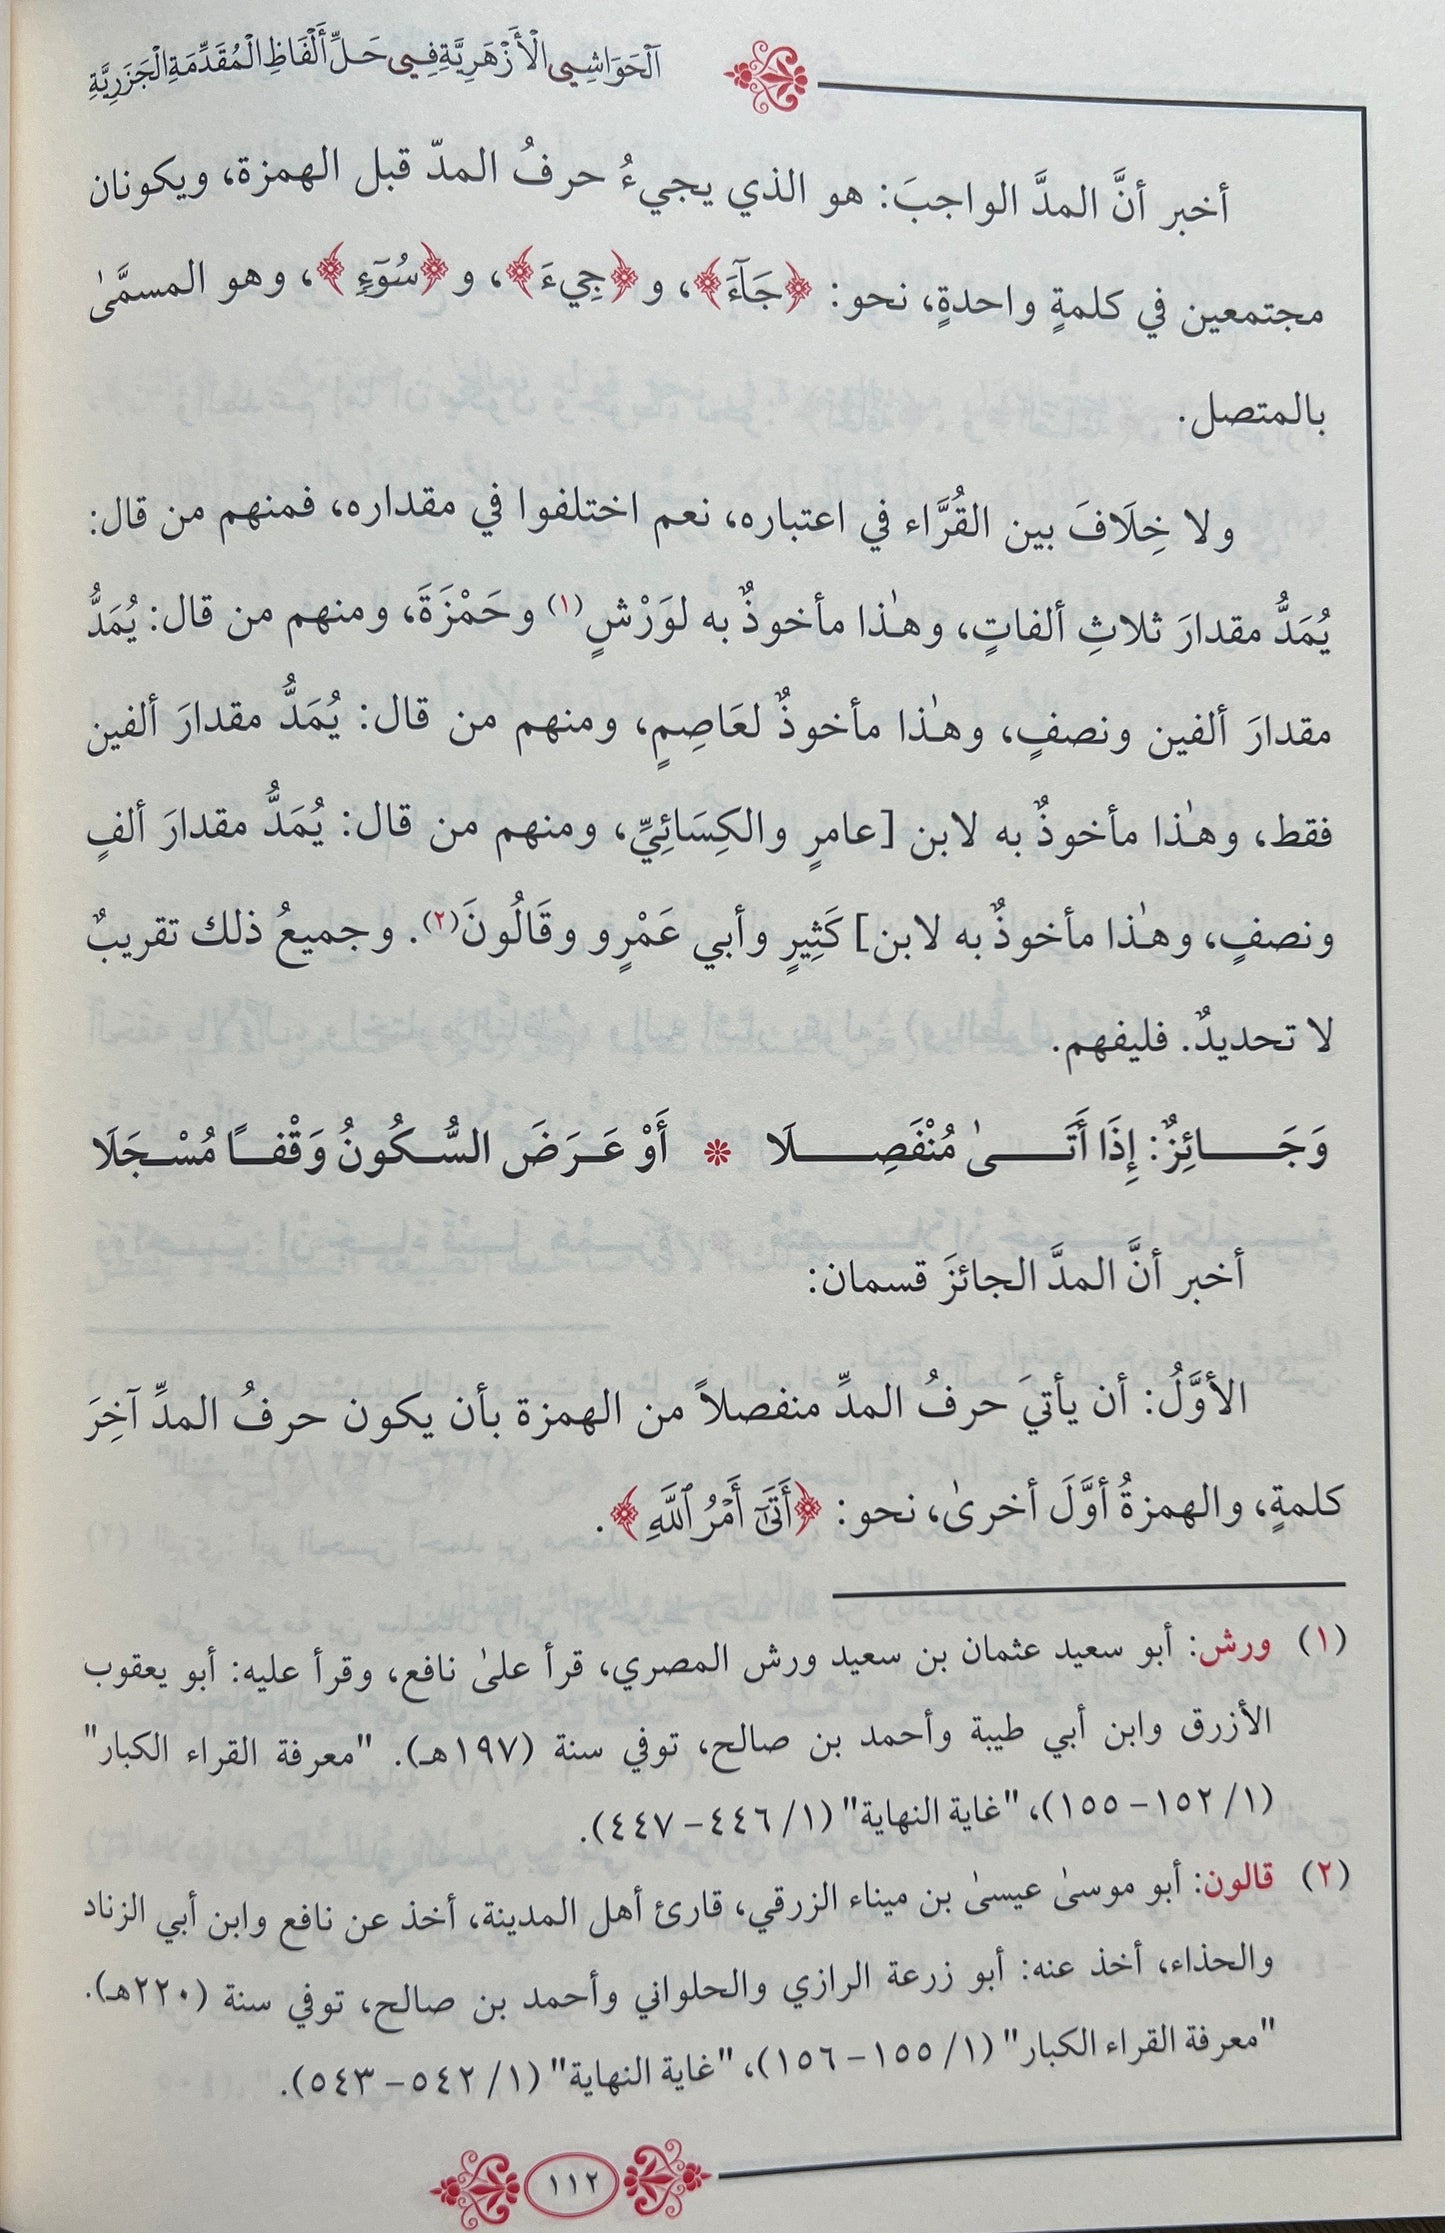 اَلْحَوَاشِي الْأَزْهَرِيَّة فِي حَلِّ أَلْفَاظِ الْمُقَدِّمَةِ الْجَزَرِيَّةِ
أخبر أنَّ المدَّ الواجبَ: هو الذي يجيءُ حرفُ المدّ قبل الهمزة، ويكونان
مجتمعين في كلمةٍ واحدةٍ، نحو: ﴿جَآءَ﴾، و﴿جِيءَ﴾، و﴿سُوٓءٍ﴾، وهو المسمَّىٰ
بالمتصل.
ولا خِلَافَ بين القُرَّاء في اعتباره، نعم اختلفوا في مقداره، فمنهم من قال:
يُمَدُّ مقدارَ ثلاثِ ألفاتٍ، وهـٰذا مأخوذٌ به لوَرْشٍ(١) وحَمْزَةَ، ومنهم من قال: يُمَدُّ
مقدارَ ألفين ونصفٍ، وهـٰذا مأخوذٌ لعَاصِمٍ، ومنهم من قال: يُمَدُّ مقدارَ ألفين
فقط، وهـٰذا مأخوذٌ به لابن [عامرٍ والكِسَائِيِّ، ومنهم من قال: يُمَدُّ مقدارَ ألفٍ
ونصفٍ، وهـٰذا مأخوذٌ به لابن] كَثِيرٍ وأبي عَمْرٍو وقَالُونَ(٢). وجميعُ ذلك تقريبٌ
لا تحديدٌ. فليفهم.
وَجَـــائِزٌ: إِذَا أَتَـــىٰ مُنْفَصِـــلَا * أَوْ عَـرَضَ السُّـكُونُ وَقْفـًا مُسْـجَلَا
أخبر أنَّ المدَّ الجائزَ قسمان:
الأوَّلُ: أن يأتيَ حرفُ المدِّ منفصلاً من الهمزة بأن يكون حرفُ المدِّ آخِرَ
كلمةٍ، والهمزةُ أوَّلَ أخرىٰ، نحو: ﴿أَتَىٰٓ أَمْرُ ٱللَّهِ﴾.
(١) ورش: أبو سعيد عثمان بن سعيد ورش المصري، قرأ علىٰ نافع، وقرأ عليه: أبو يعقوب
الأزرق وابن أبي طيبة وأحمد بن صالح، توفي سنة (١٩٧هـ). "معرفة القراء الكبار"
(١/ ١٥٢- ١٥٥)، "غاية النهاية" (١/ ٤٤٦- ٤٤٧).
(٢) قالون: أبو موسىٰ عيسىٰ بن ميناء الزرقي، قارئ أهل المدينة، أخذ عن نافع وابن أبي الزناد
والحذاء، أخذ عنه: أبو زرعة الرازي والحلواني وأحمد بن صالح، توفي سنة (٢٢٠هـ).
"معرفة القراء الكبار" (١/ ١٥٥- ١٥٦)، "غاية النهاية" (١/ ٥٤٢- ٥٤٣).
١١٢